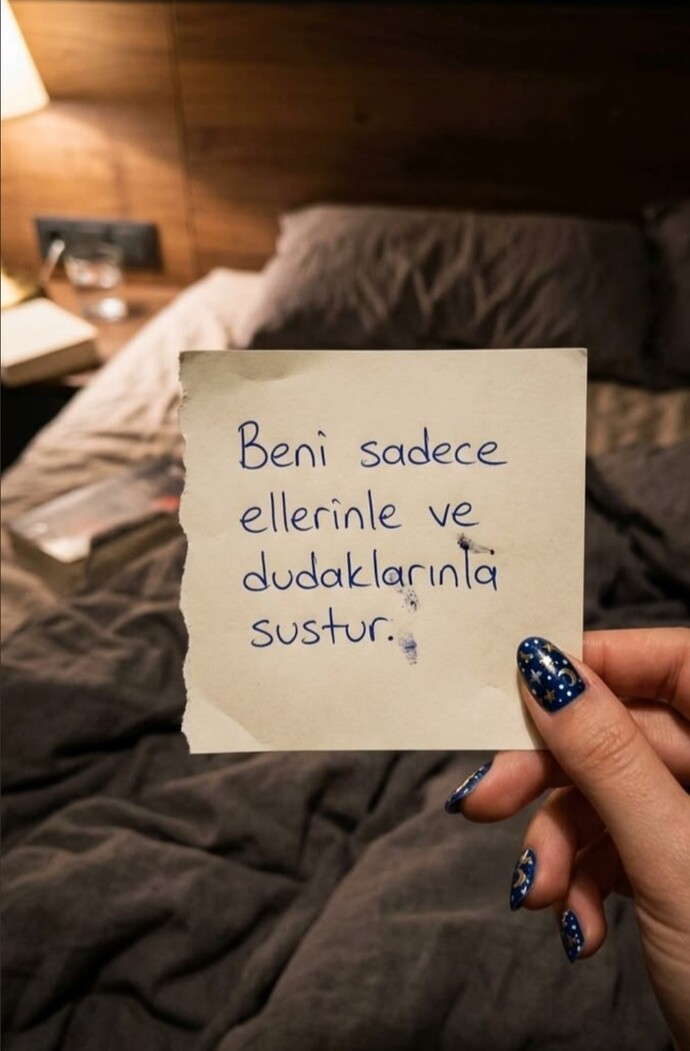 Beni sadece
ellerinle ve
dudaklarınla
sustur.